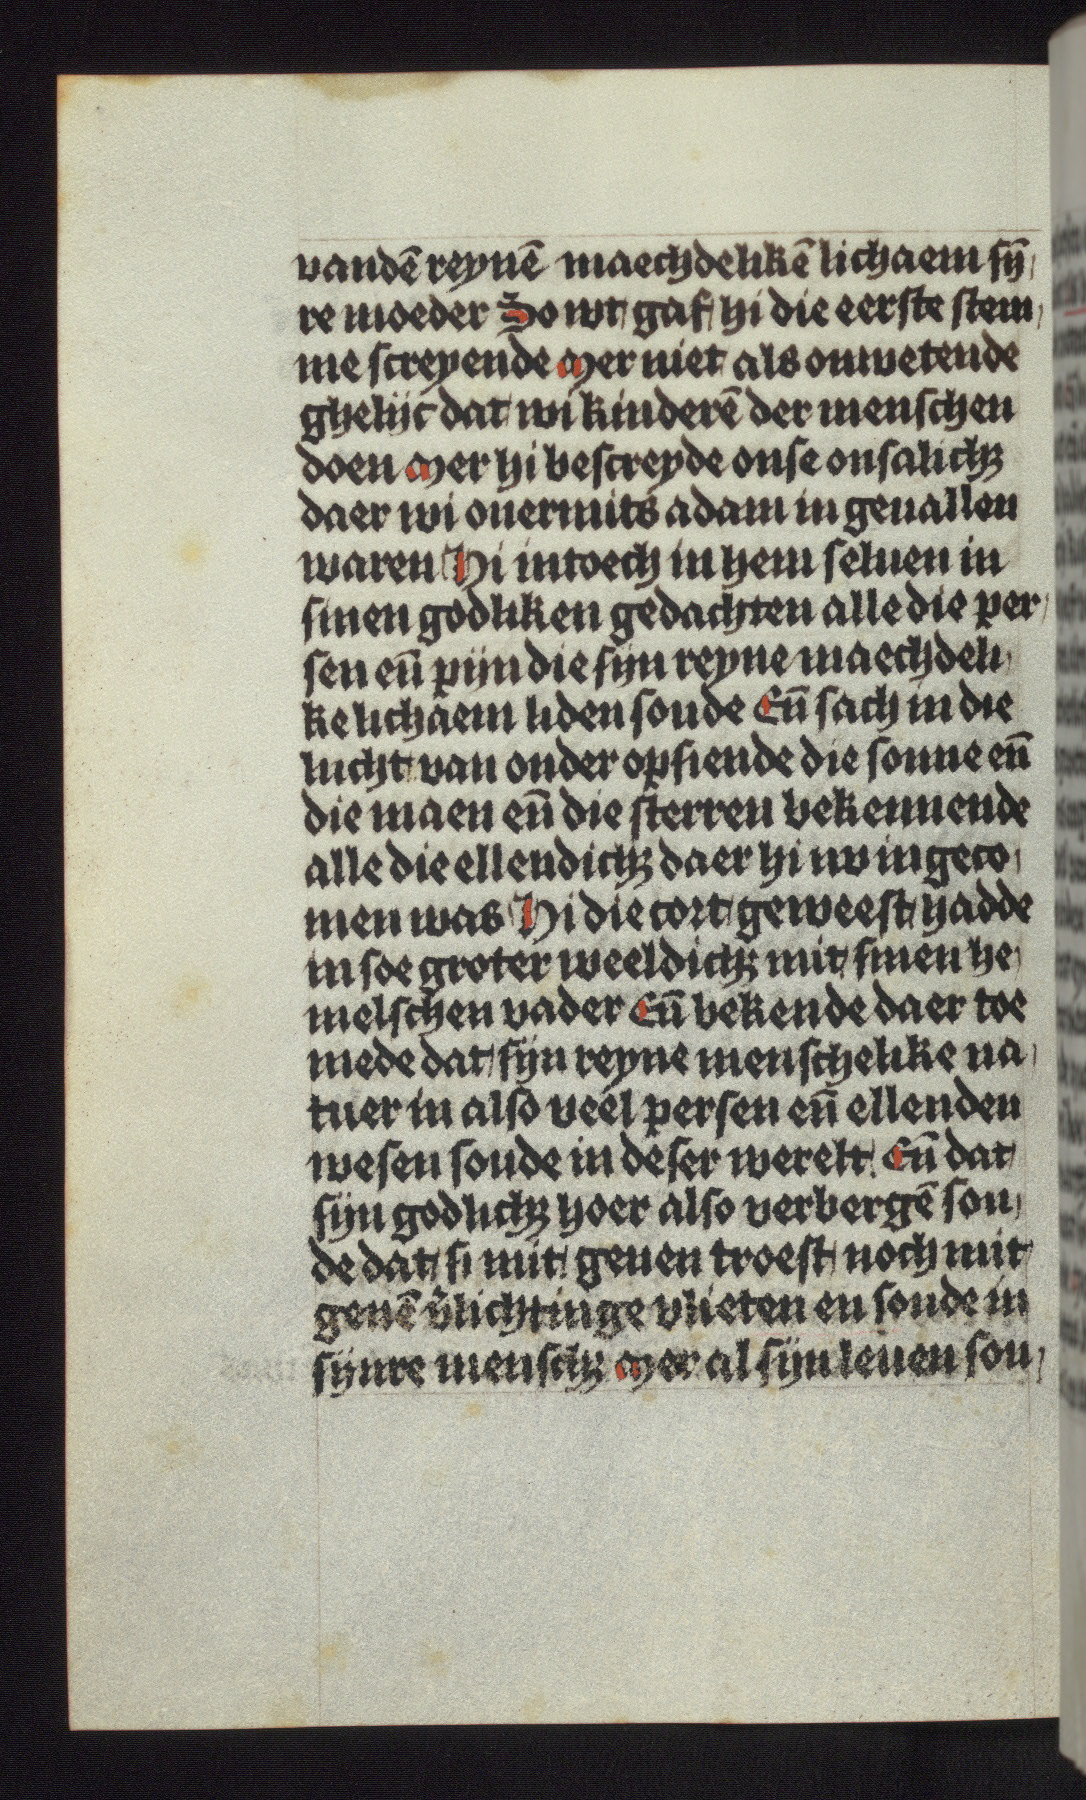 vandē reynē maechdelikē lichaem sȳ
re moeder So wt gaf hi die eerste stem
me screyende Mer niet als onwetende
ghelijc dat wi kinderē der menschen
doen Mer hi bescreyde onse onsalichꝫ
daer wi ouermits adam in geuallen
waren Hi intoech in hem seluen in
sinen godliken gedachten alle die per
sen eñ pijn die sijn reyne maechdeli
ke lichaem liden soude Eñ sach in die
lucht van onder opsiende die sonne eñ
die maen eñ die sterren bekennende
alle die ellendichꝫ daer hi nv in geco
men was Hi die cort geweest hadde
in soe groter weeldichꝫ mit sinen he
melschen vader Eñ bekende daer toe
mede dat sijn reyne menschelike na
tuer in also veel persen eñ ellenden
wesen soude in deser werelt Eñ dat
sijn godlichꝫ hoer also verbergē sou
de dat si mit genen troest noch mit
genē v̄lichtinge vlieten en soude in
sijnre menschꝫ Mer al sijn leuen sou